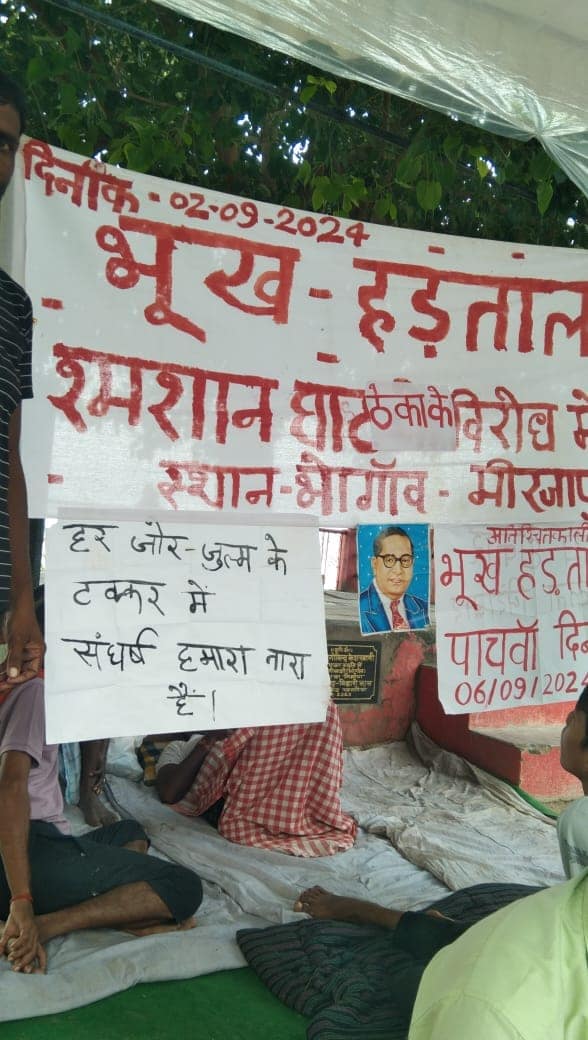 दिनाँक - 02-09-2024
भूख - हड़ताल
श्मशान घाट ठेका के विरोध में
स्थान - भोगाँव - मीरजापु
हर जोर-जुल्म के
टक्कर में
संघर्ष हमारा नारा
है।
भूख हड़ता
पाचवाँ दिन
06/09/2024